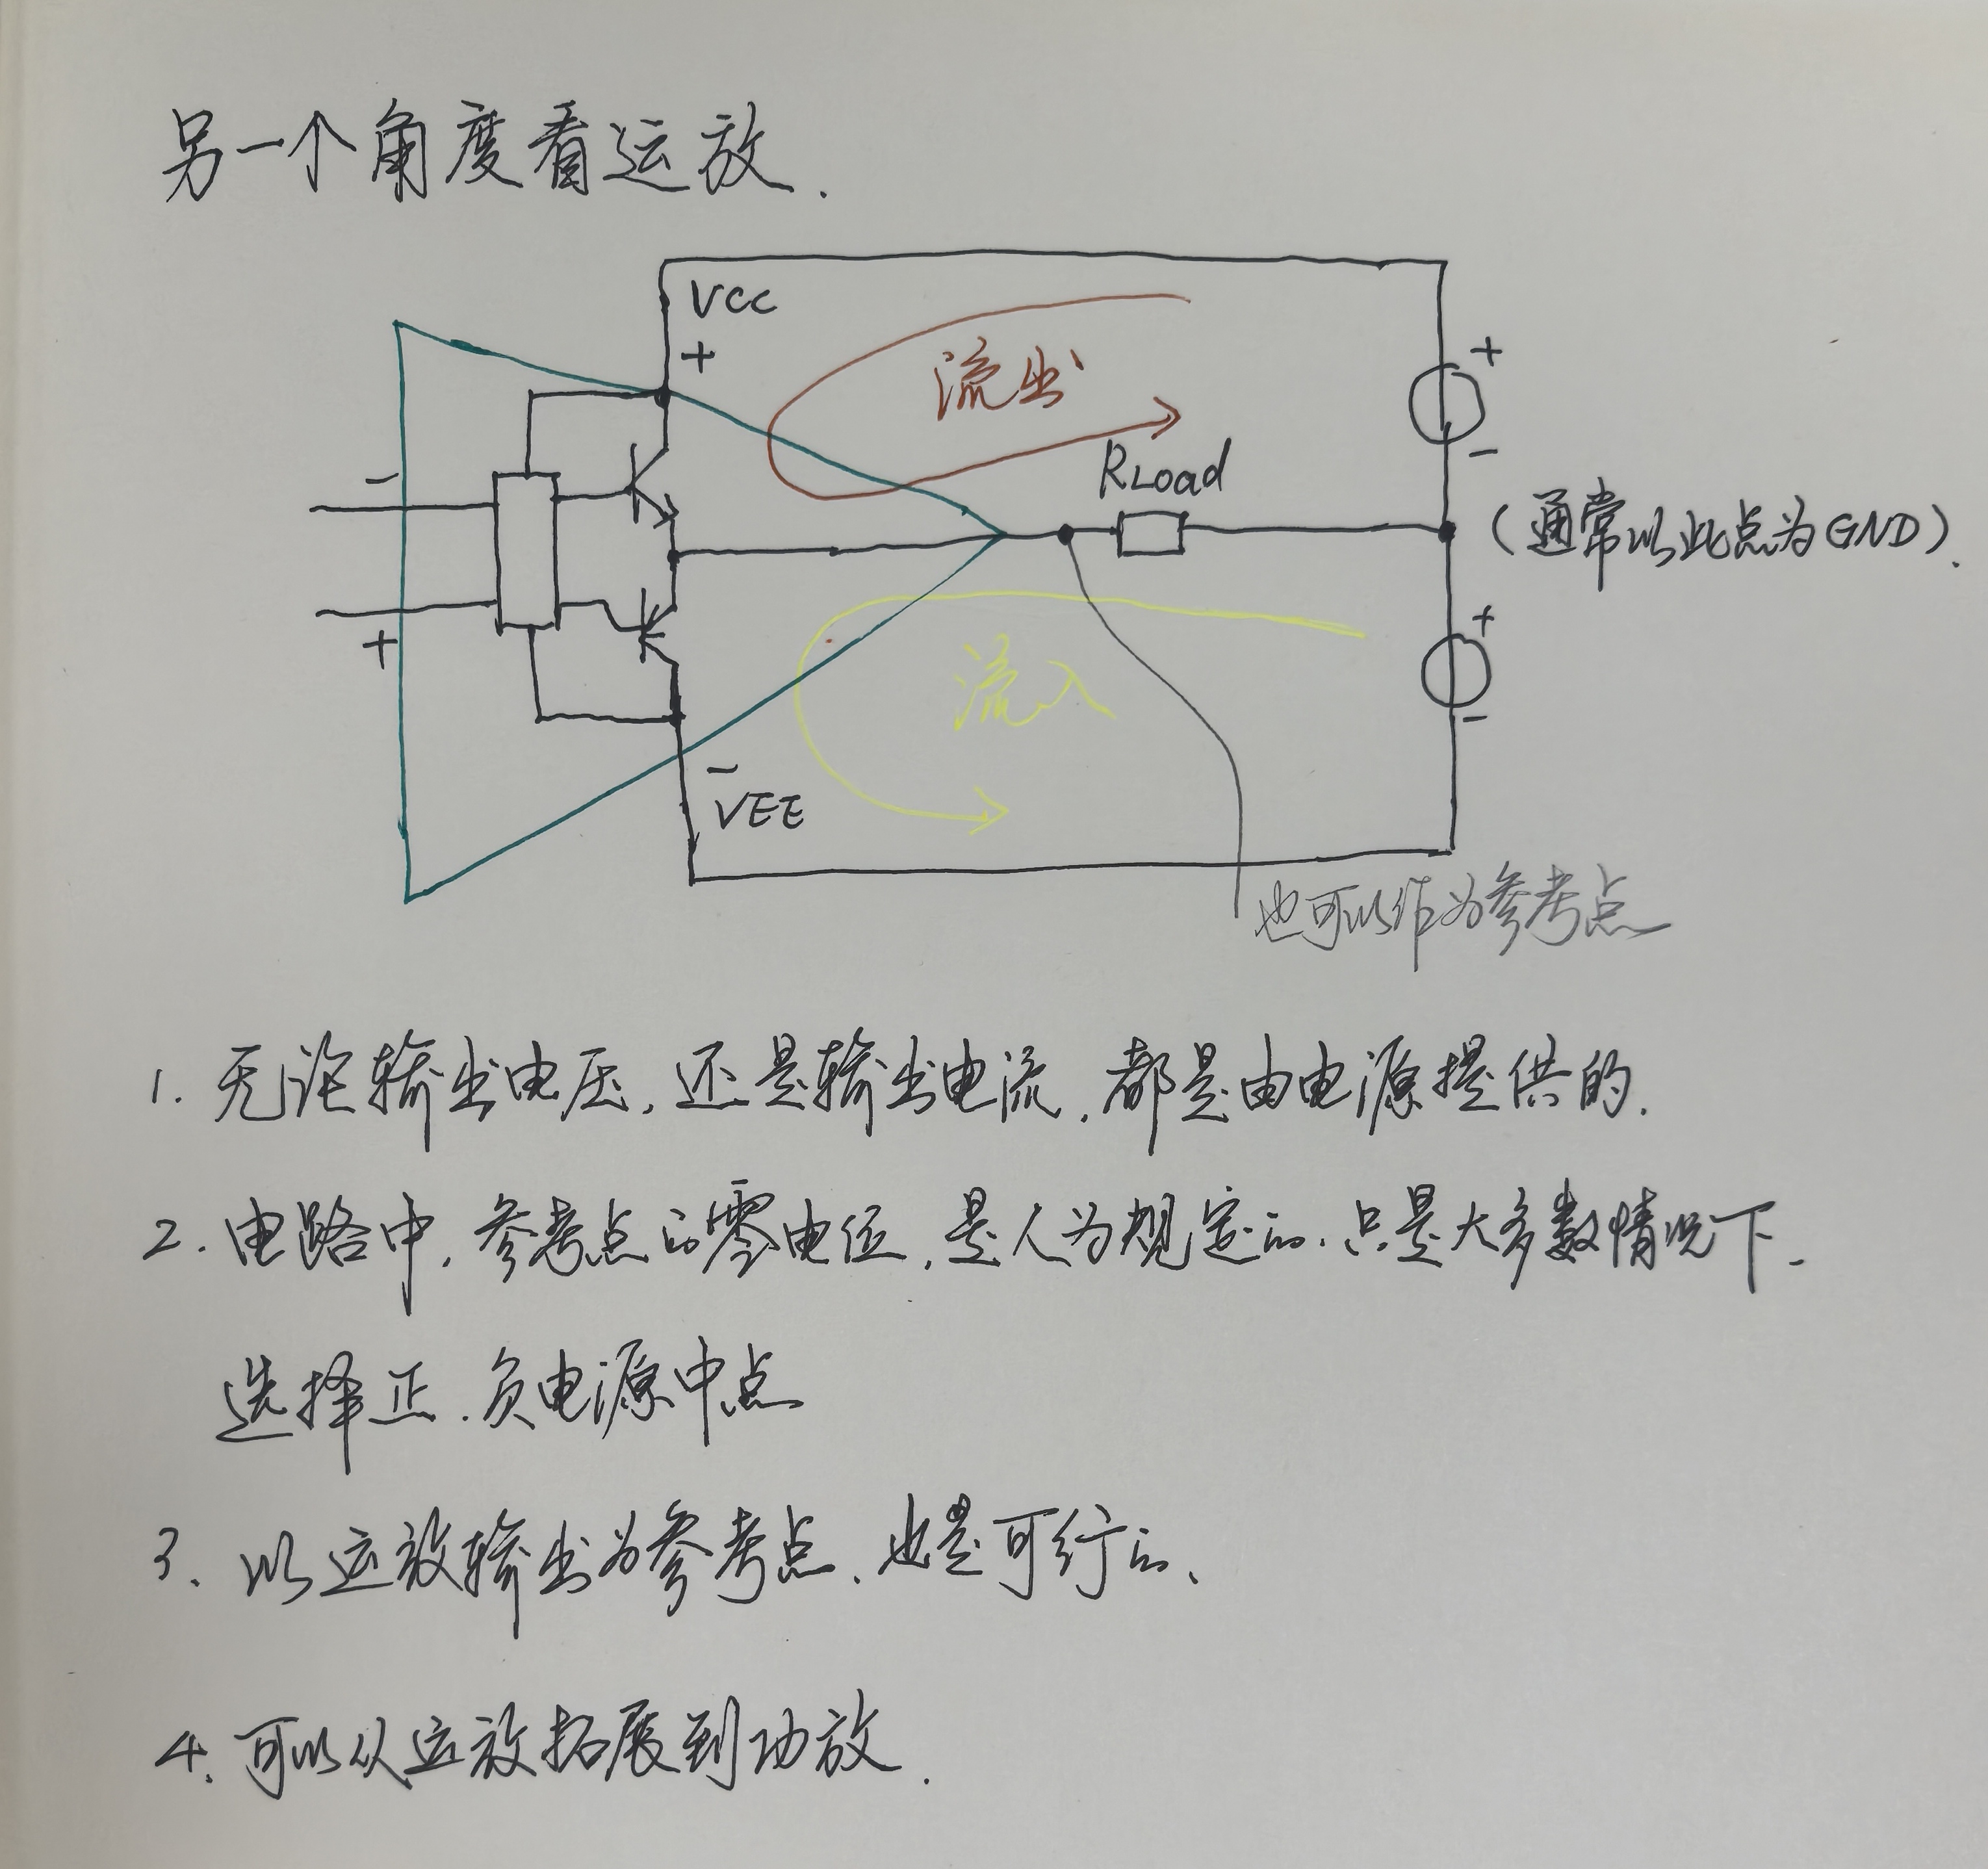 另一个角度看运放.
VCC
+
流出
+
-
RLoad
-
(通常以此点为GND).
+
+
流入
-
-
VEE
也可以作为参考点
1. 无论输出电压, 还是输出电流, 都是由电源提供的.
2. 电路中, 参考点的零电位, 是人为规定的. 只是大多数情况下.
选择正.负电源中点
3. 以运放输出为参考点. 也是可行的.
4. 可以从运放拓展到功放.